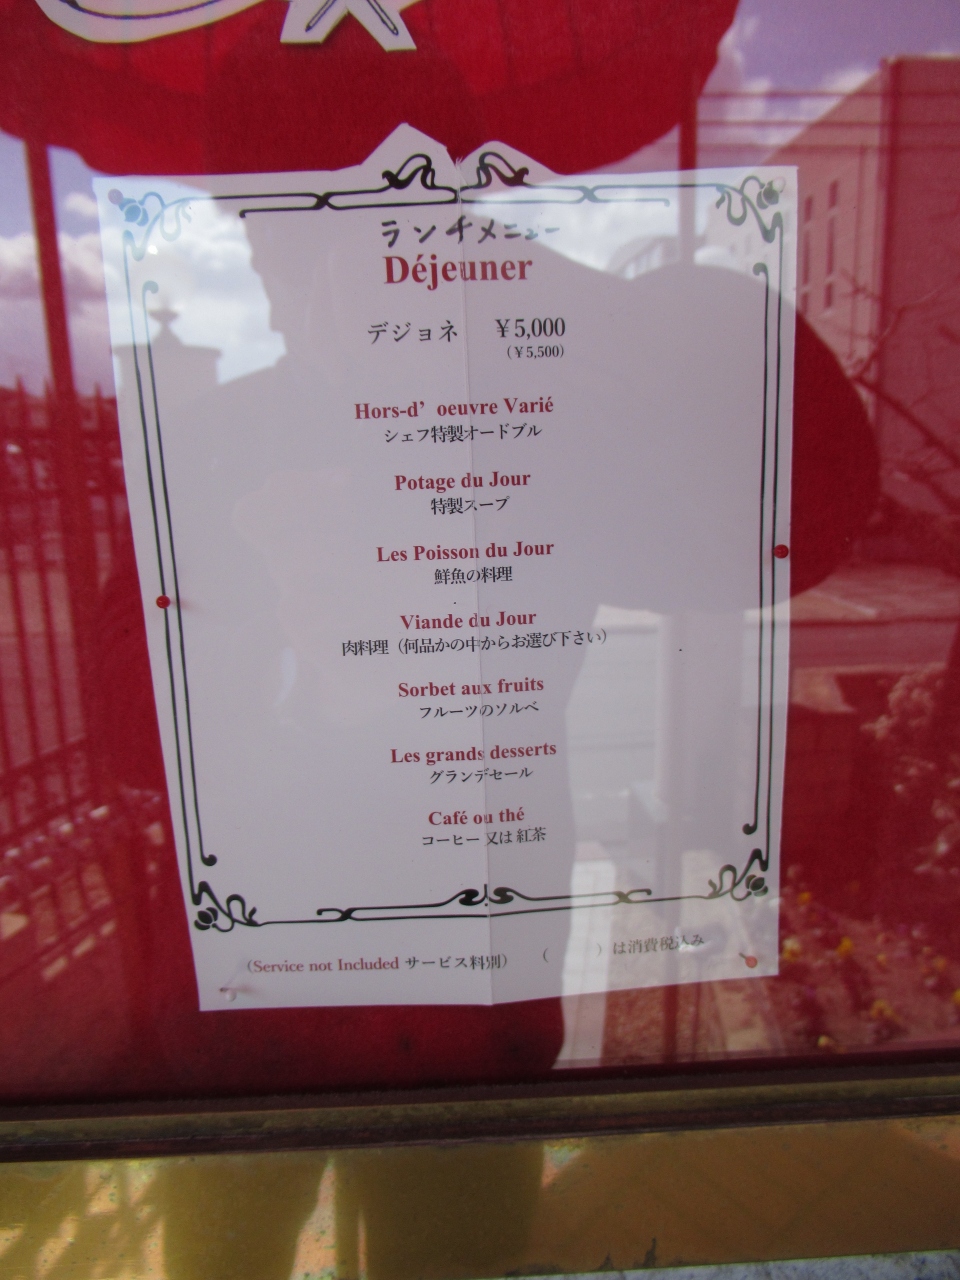 ランチメニュー
Déjeuner
デジョネ ￥5,000
(￥5,500)
Hors-d’oeuvre Varié
シェフ特製オードブル
Potage du Jour
特製スープ
Les Poisson du Jour
鮮魚の料理
Viande du Jour
肉料理（何品かの中からお選び下さい）
Sorbet aux fruits
フルーツのソルベ
Les grands desserts
グランデセール
Café ou thé
コーヒー 又は 紅茶
（Service not Included サービス料別） （ ）は消費税込み